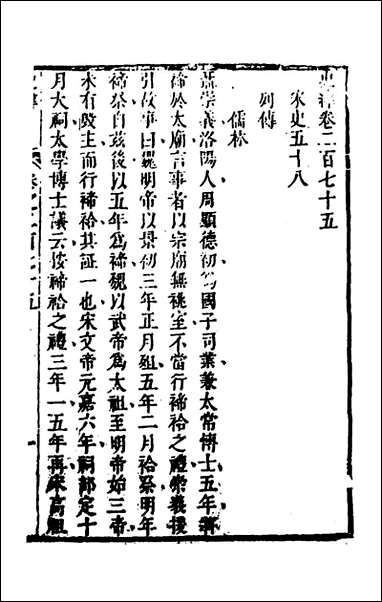 史緯卷二百七十五
宋史五十八
列傳
儒林
聶崇義洛陽人周顯德初爲國子司業兼太常博士五年將
禘於太廟言事者以宗廟無祧室不當行禘祫之禮崇義援
引故事曰魏明帝以景初三年正月殂五年二月祫祭明年
禘祭自茲後以五年爲禘魏以武帝爲太祖至明帝始三帝
未有毀主而行禘祫其証一也宋文帝元嘉六年祠部定十
月大祠太學博士議云按禘祫之禮三年一五年再宋高祖